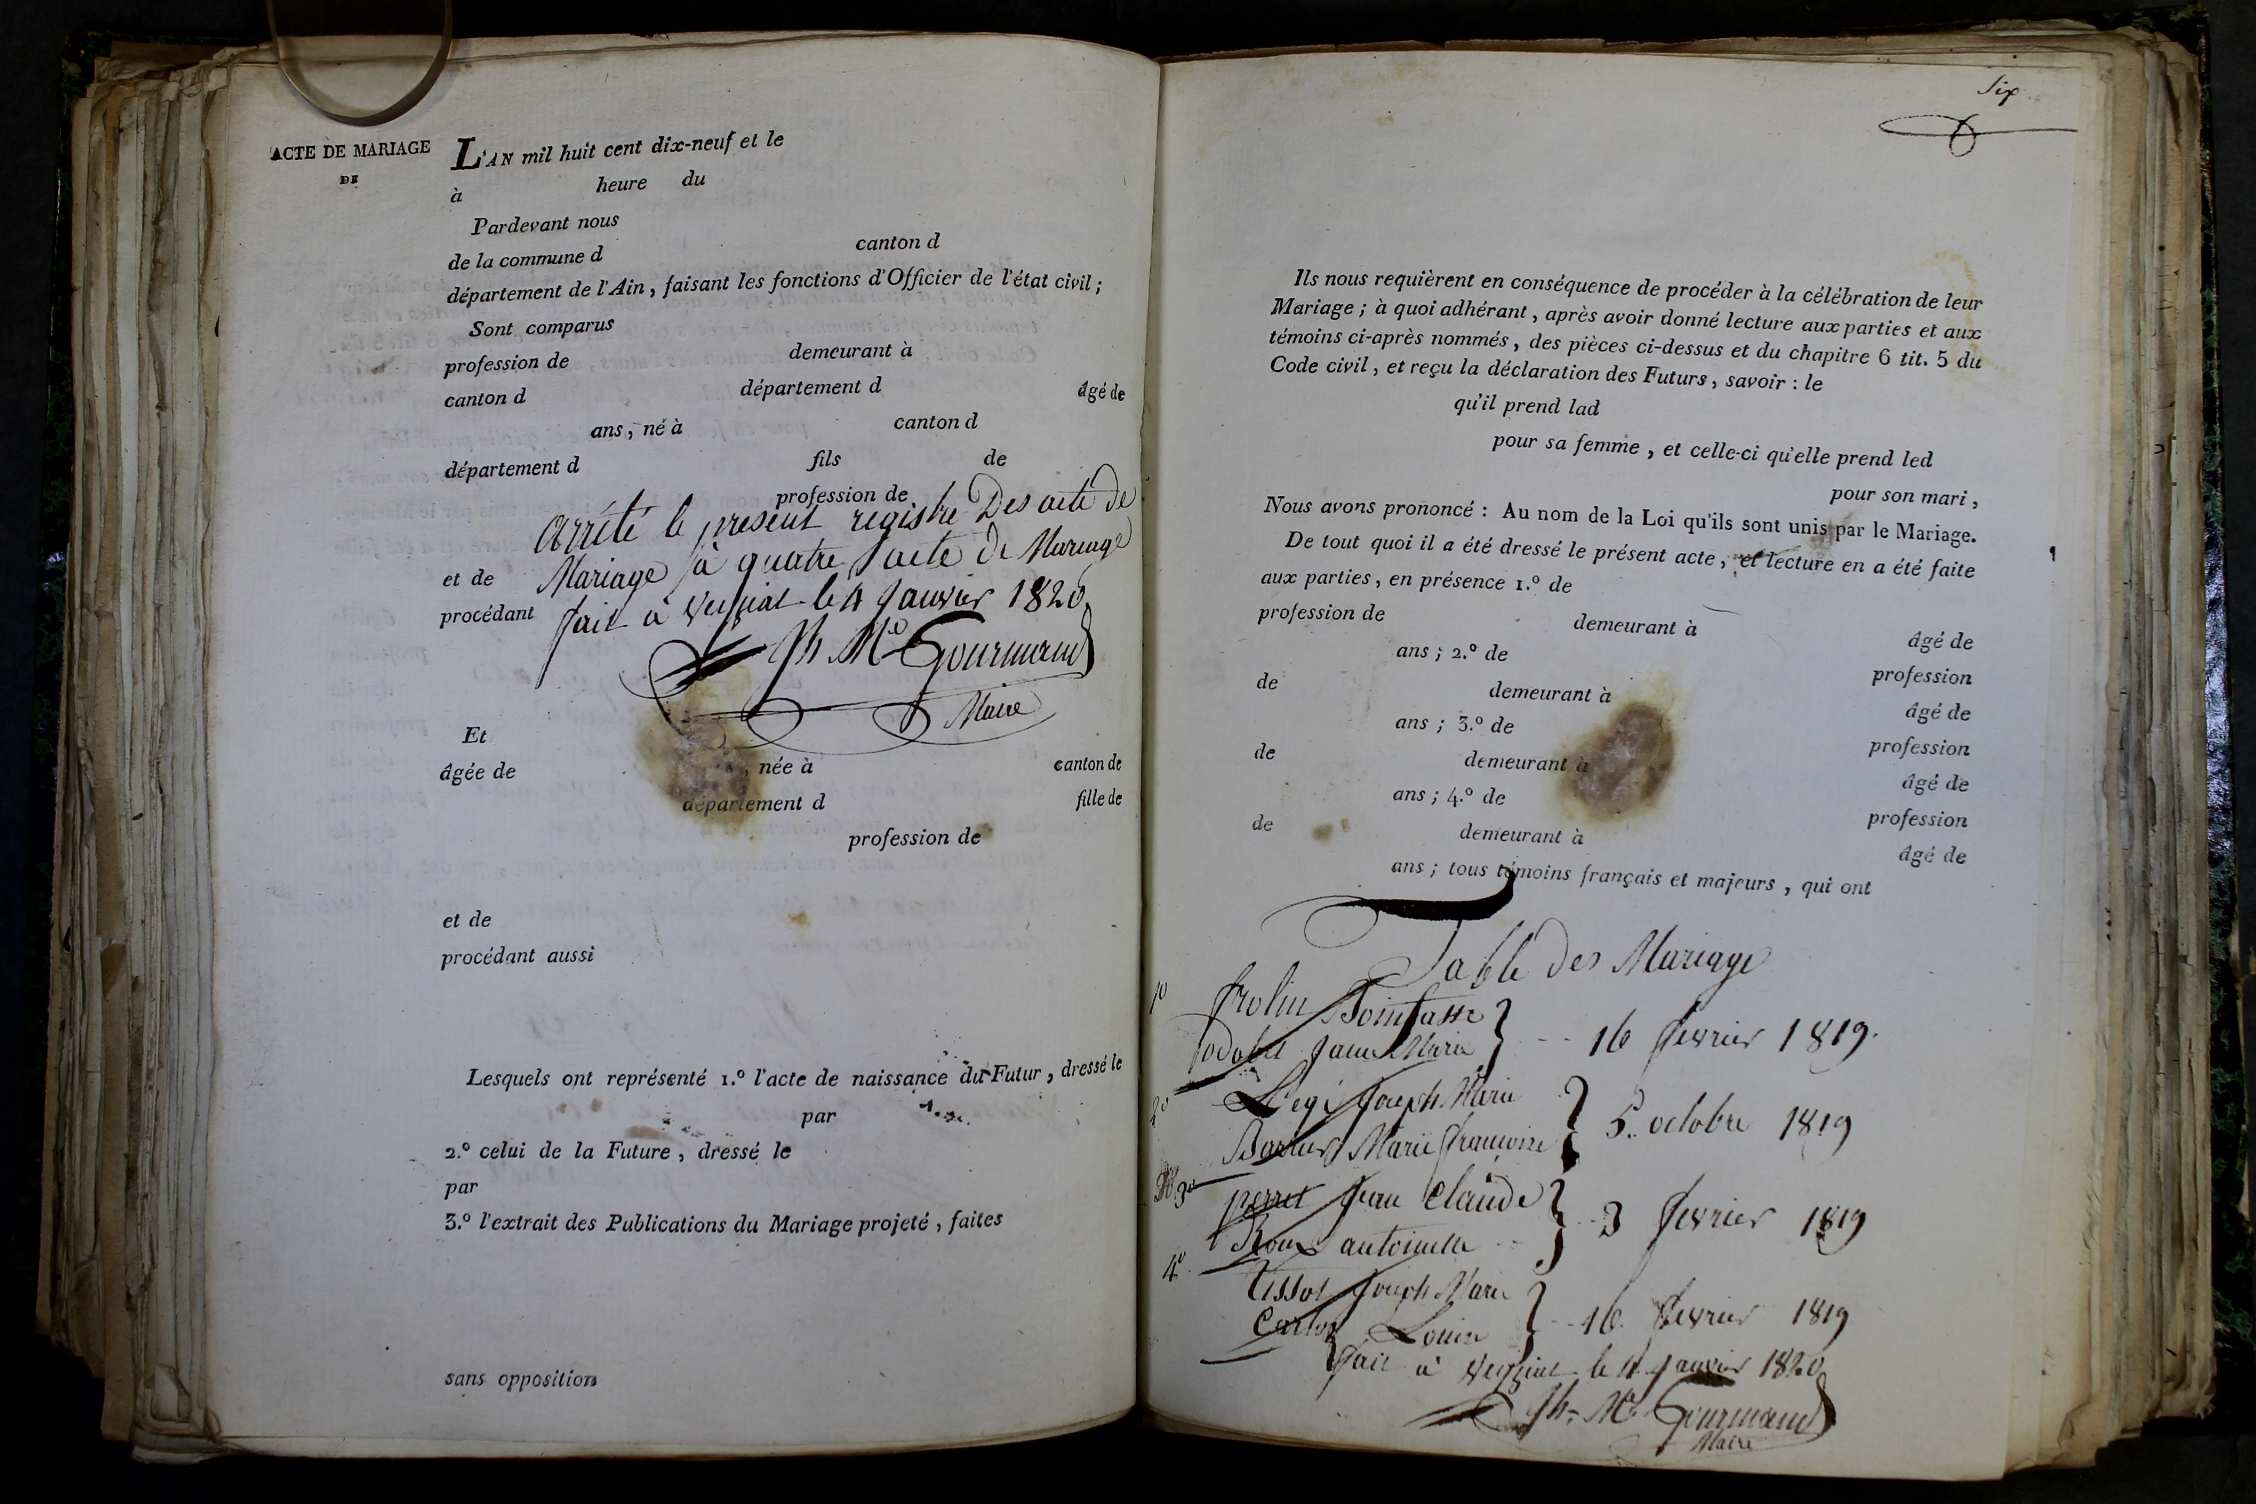 ACTE DE MARIAGE
DE
L'AN mil huit cent dix-neuf et le
à heure du
Pardevant nous
de la commune d canton d
département de l'Ain, faisant les fonctions d'Officier de l'état civil;
Sont comparus
profession de demeurant à
canton d département d âgé de
ans, né à canton d
département d fils de
profession de
arrêté le present registre Des acte de
Mariage à quatre acte de Mariage
et de
procédant
fait à le 4 Janvier 1820
Jh Mie Gourmand
Maire
Et
âgée de , née à canton de
département d fille de
profession de
et de
procédant aussi
Lesquels ont représenté 1.º l'acte de naissance du Futur, dressé le
par
2.º celui de la Future, dressé le
par
3.º l'extrait des Publications du Mariage projeté, faites
sans opposition
Six
Ils nous requièrent en conséquence de procéder à la célébration de leur
Mariage; à quoi adhérant, après avoir donné lecture aux parties et aux
témoins ci-après nommés, des pièces ci-dessus et du chapitre 6 tit. 5 du
Code civil, et reçu la déclaration des Futurs, savoir: le
qu'il prend lad
pour sa femme, et celle-ci qu'elle prend led
pour son mari,
Nous avons prononcé: Au nom de la Loi qu'ils sont unis par le Mariage.
De tout quoi il a été dressé le présent acte, et lecture en a été faite
aux parties, en présence 1.º de
profession de demeurant à âgé de
ans; 2.º de profession
de demeurant à âgé de
ans; 3.º de profession
de demeurant à âgé de
ans; 4.º de profession
de demeurant à âgé de
ans; tous témoins français et majeurs, qui ont
Table des Mariage
1º frolin
Marie
16 fevrier 1819.
2º Joseph Marie
Marie françoise
5 octobre 1819
3º perret Jean Claude
Roux antoinette
3 fevrier 1819
4º tissot Joseph Marie
Louise
16 fevrier 1819
fait à le 4 Janvier 1820
Jh Mie Gourmand
Maire